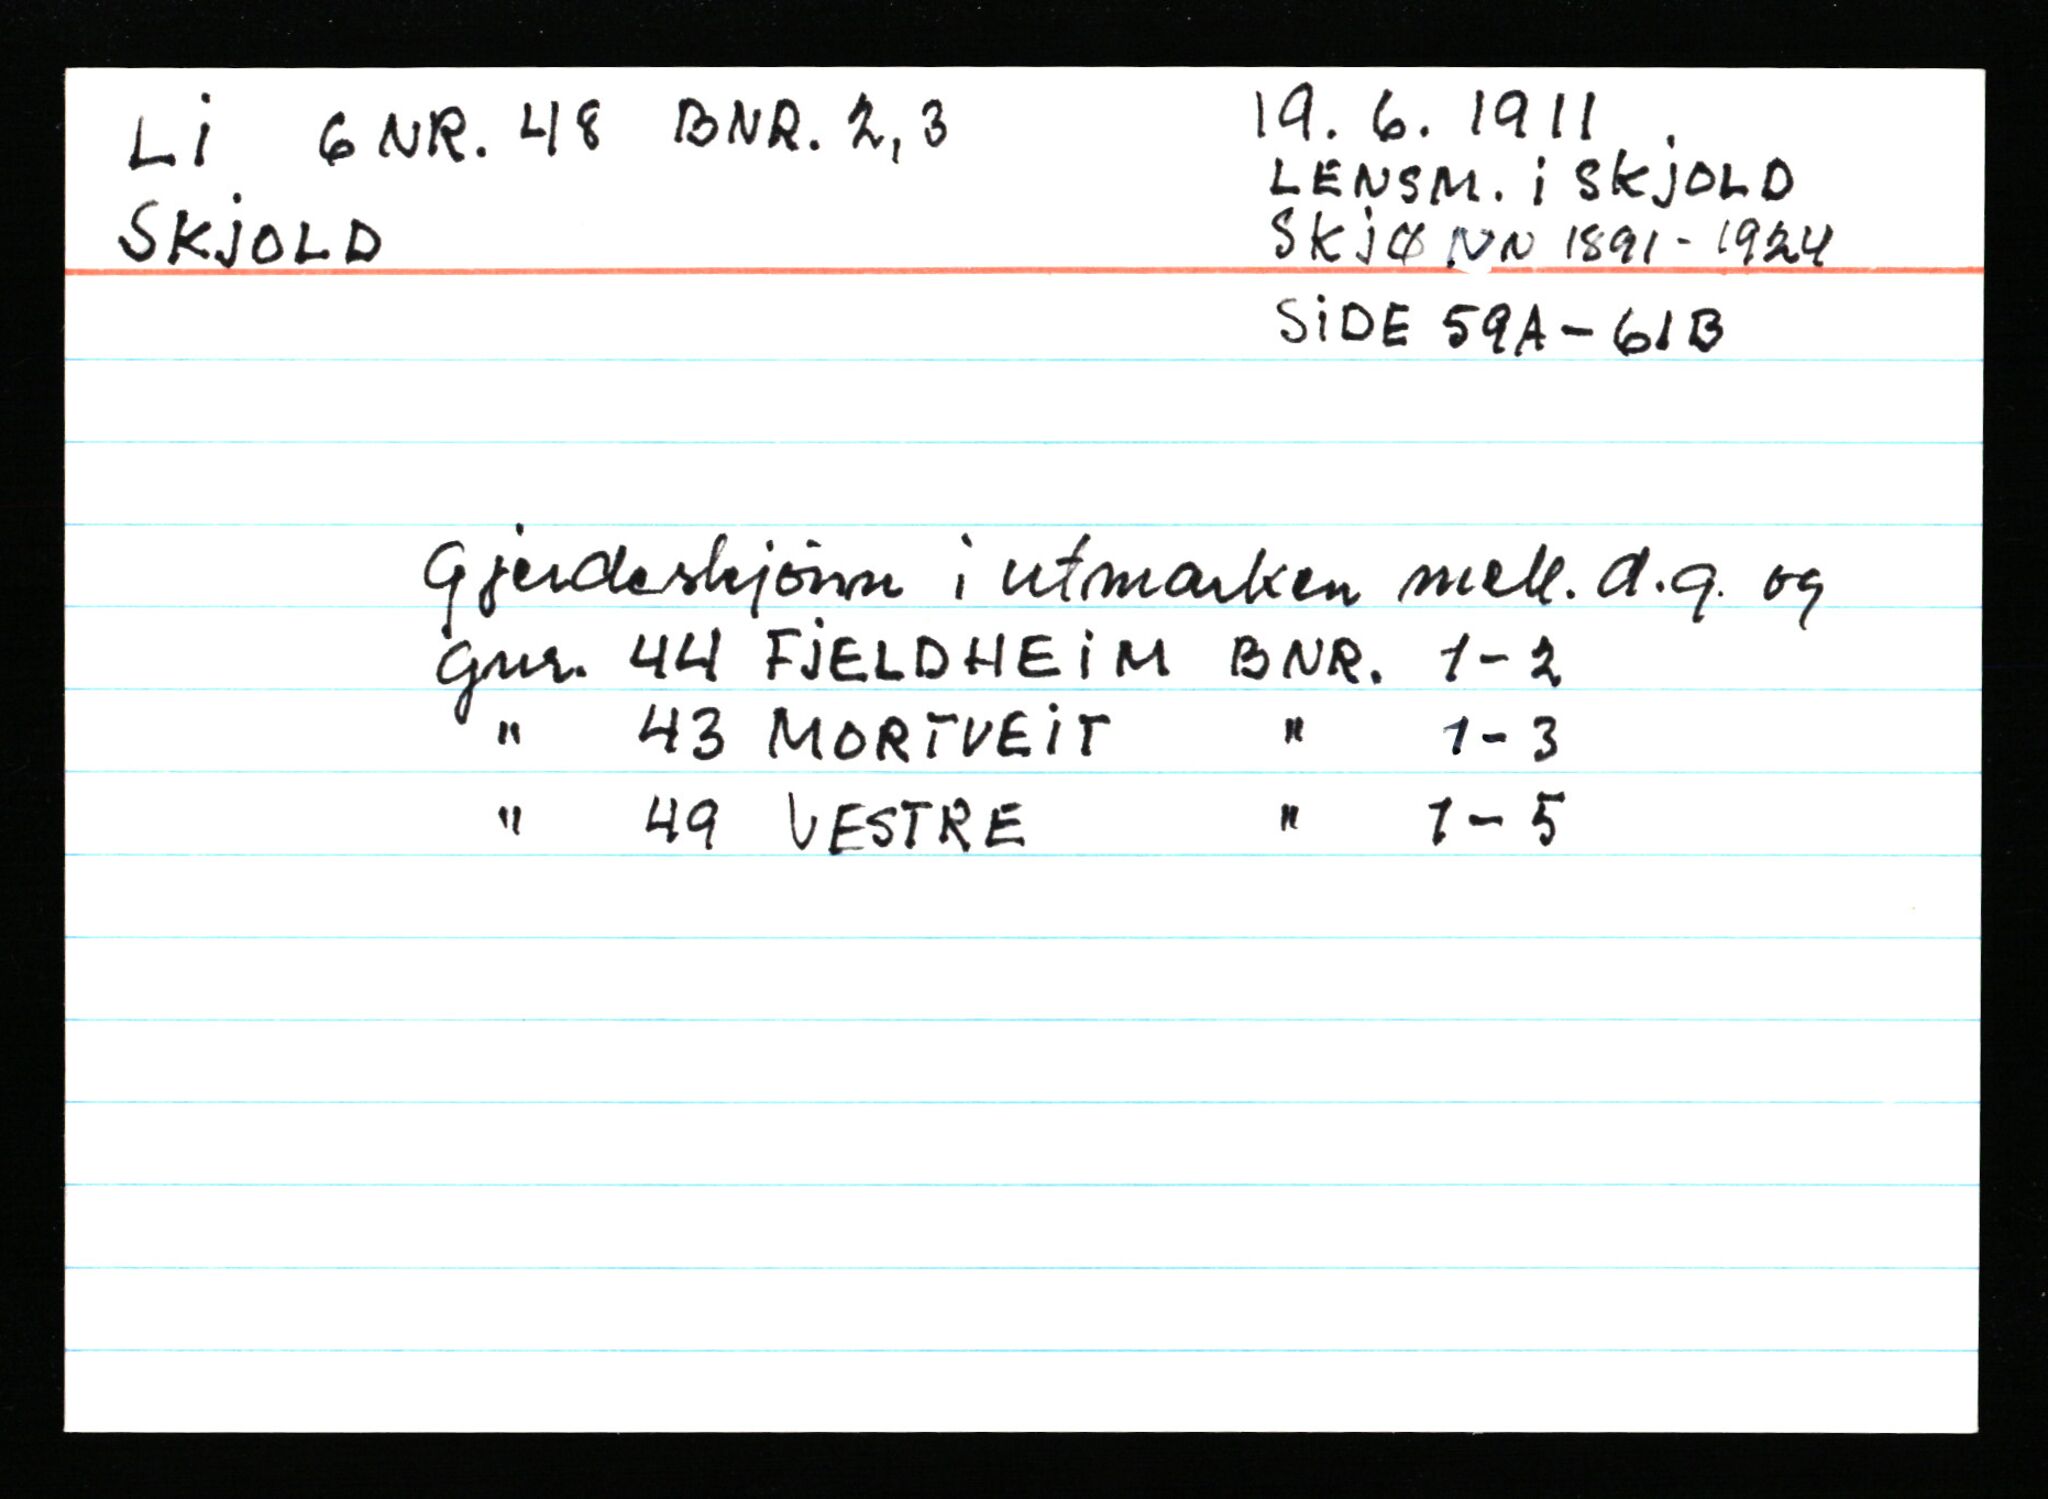 Li GNR. 48 BNR. 2,3
SKjOLD
19. 6. 1911.
LENSM. i SKjOLD
SKjØNN 1891-1924
SiDE 59A-61B
Gjerdeskjönn i utmarken mell. d.g. og
gnr. 44 FjELDHEiM BNR. 1-2
" 43 MORTVEiT " 1-3
" 49 VESTRE " 1-5